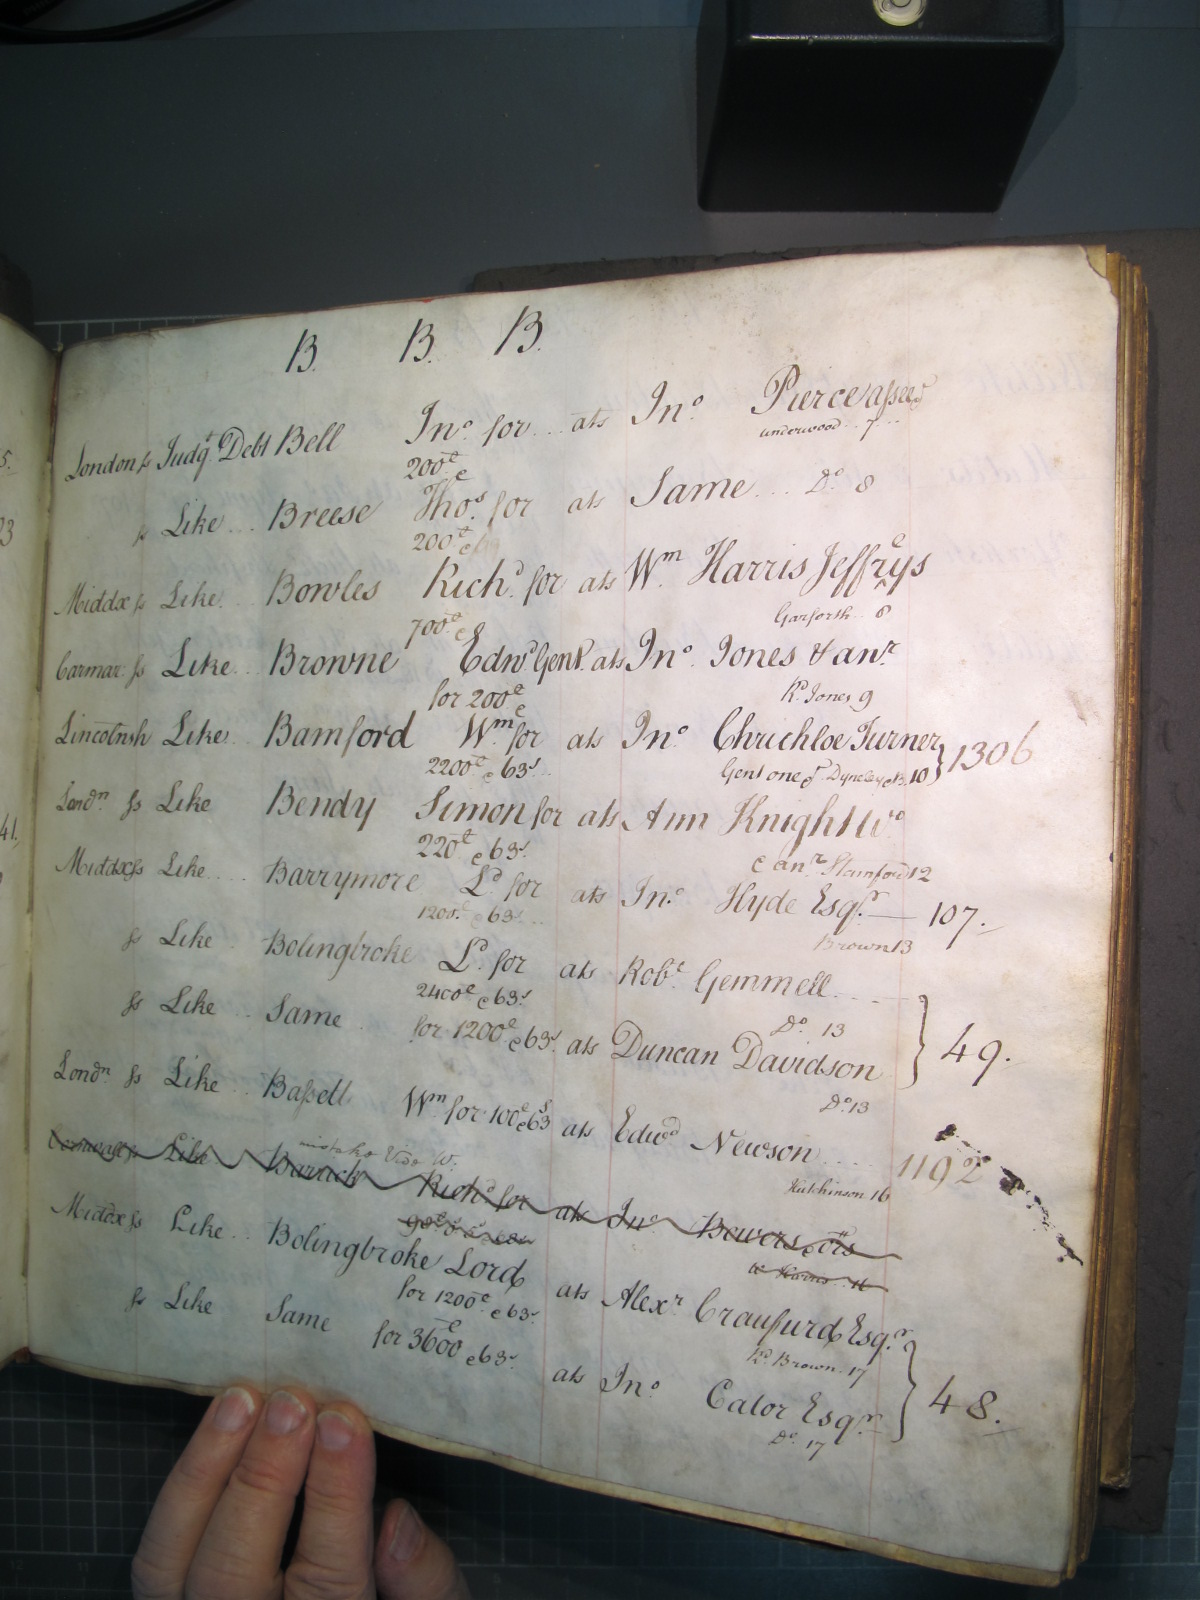 B. B. B.
London ss Judgt Debt Bell Jno. for ... ats Jno. Pierce assee
200£ c underwood .. 7 ..
ss Like ... Breese Thos. for ats Same ... Do. 8
200£ c 63
Middx ss Like Bowles Richd. for ats Wm Harris Jeffreys
700£ c Garforth .. 8
Carmar ss Like ... Browne Edwd Gent. ats Jno. Jones & anr
for 200£ c Rd. Jones 9
Lincolnsh Like ... Bamford Wm for ats Jno. Chrichloe Turner } 1306
2200£ c 63s. Gent one &c Dyneley 10
Londn ss Like Bendy Simon for ats Ann Knight Wo
220£ c 63s. & anr. Stamford 12
Middx ss Like .... Barrymore Ld. for ats Jno. Hyde Esqr. — 107.
1200£ c 63s. Brown 13
ss Like Bolingbroke Ld. for ats Robt. Gemmell ....
2400£ c 63s. Do. 13
ss Like Same for 1200£ c 63s. ats Duncan Davidson } 49.
Do. 13
Londn ss Like Bassett Wm for 100£ c 63s ats Edwd Newson .... 1192
Hutchinson 16
mistake Vide W.
Like Barrack Richd. for ats Jno. Bowers & ors
Harris .. 16
Middx ss Like .. Bolingbroke Lord ats Alexr Craufurd Esqr.
for 1200£ c 63s. Rd. Brown. 17
ss Like Same for 3600£ c 63s. ats Jno. Cator Esqr. } 48.
Do. 17